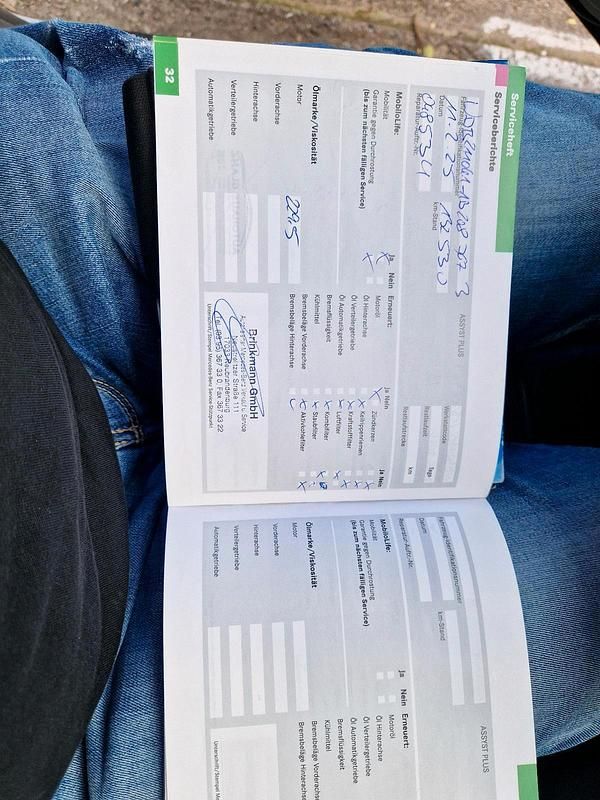 Serviceheft
Serviceberichte
Fahrzeug-Identifikationsnummer
ASSYST PLUS
Datum
km-Stand
11.2.23
132530
Werkstattcode
Reparatur-Auftr.-Nr.
Restlaufzeit
Tage
048534
Reststrecke
km
MobiloLife:
Ja
Nein
Erneuert:
Ja
Nein
Ja
Nein
Mobilität
Motoröl
Zündkerzen
Garantie gegen Durchrostung
Öl Hinterachse
Keilrippenriemen
(bis zum nächsten fälligen Service)
Öl Verteilergetriebe
Kraftstofffilter
Öl Automatikgetriebe
Luftfilter
Bremsflüssigkeit
Kombifilter
Ölmarke/Viskosität
Kühlmittel
Staubfilter
Motor
229.5
Bremsbeläge Vorderachse
Aktivkohlefilter
Vorderachse
Bremsbeläge Hinterachse
Hinterachse
Verteilergetriebe
Automatikgetriebe
Brinkmann GmbH
17033 Neubrandenburg
367 33 0, Fax 367 33 22
Unterschrift/Stempel Mercedes-Benz Service-Stützpunkt
32
Fahrzeug-Identifikationsnummer
ASSYST PLUS
Datum
km-Stand
Reparatur-Auftr.-Nr.
MobiloLife:
Ja
Nein
Erneuert:
Mobilität
Motoröl
Garantie gegen Durchrostung
Öl Hinterachse
(bis zum nächsten fälligen Service)
Öl Verteilergetriebe
Öl Automatikgetriebe
Bremsflüssigkeit
Ölmarke/Viskosität
Kühlmittel
Motor
Bremsbeläge Vorderachse
Vorderachse
Bremsbeläge Hinterachse
Hinterachse
Verteilergetriebe
Automatikgetriebe
Unterschrift/Stempel